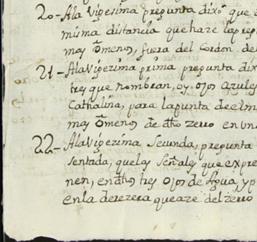 20- A la Vigezima pregunta dixo que e
misma distancia que haze la pre
mas o menos, fuera del Cordon de
21- A la Vigezima prima pregunta dix
tres que nombran, oy, ojos Azules
Cathalina, para la punta de el m
mas o menos de dho zerro en un
22- A la Vigezima Secunda, pregunta
sentada, que las Señales que expre
nen, en dhos tres Ojos de Agua, y p
en la derezera que aze del zerro